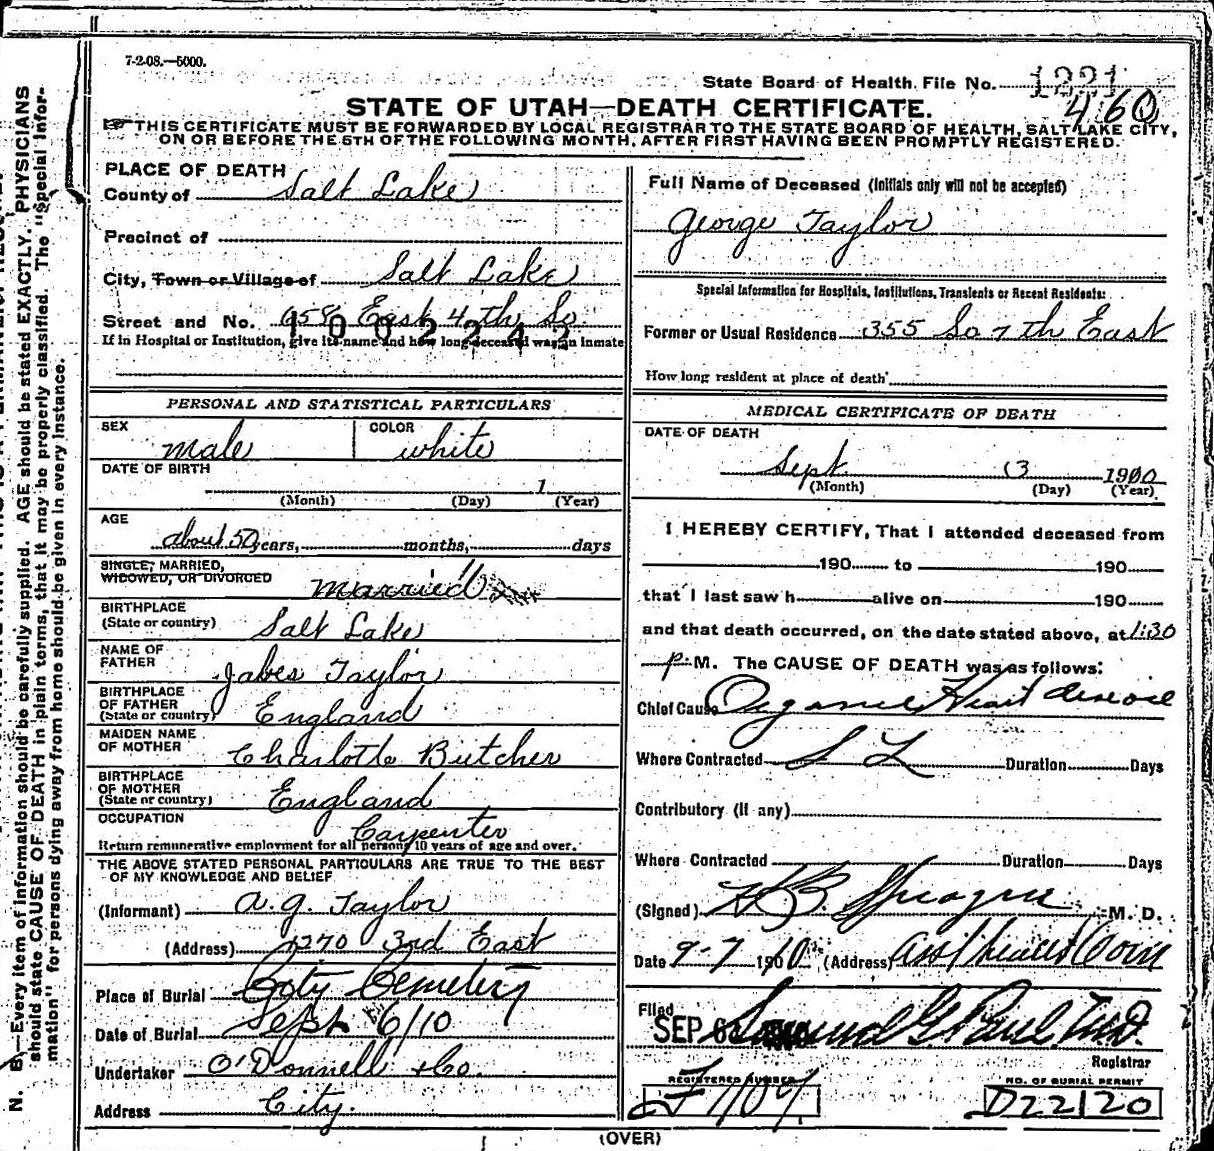 7-2-08.—5000.
State Board of Health File No. 1221
460
STATE OF UTAH—DEATH CERTIFICATE.
THIS CERTIFICATE MUST BE FORWARDED BY LOCAL REGISTRAR TO THE STATE BOARD OF HEALTH, SALT LAKE CITY,
ON OR BEFORE THE 5TH OF THE FOLLOWING MONTH, AFTER FIRST HAVING BEEN PROMPTLY REGISTERED.
PLACE OF DEATH
County of Salt Lake
Precinct of
City, Town or Village of Salt Lake
Street and No. 658 East 4th So
1002242
If in Hospital or Institution, give its name and how long deceased was an inmate
Full Name of Deceased (Initials only will not be accepted)
George Taylor
Special Information for Hospitals, Institutions, Transients or Recent Residents:
Former or Usual Residence 355 So 7th East
How long resident at place of death
PERSONAL AND STATISTICAL PARTICULARS
SEX male COLOR white
DATE OF BIRTH
1
(Month) (Day) (Year)
AGE
about 50 years, months, days
SINGLE, MARRIED,
WIDOWED, OR DIVORCED married
BIRTHPLACE
(State or country) Salt Lake
NAME OF
FATHER Jabes Taylor
BIRTHPLACE
OF FATHER
(State or country) England
MAIDEN NAME
OF MOTHER Charlotte Butcher
BIRTHPLACE
OF MOTHER
(State or country) England
OCCUPATION Carpenter
Return remunerative employment for all persons 10 years of age and over.
THE ABOVE STATED PERSONAL PARTICULARS ARE TRUE TO THE BEST
OF MY KNOWLEDGE AND BELIEF
(Informant) A. G. Taylor
(Address) 1270 3rd East
Place of Burial City Cemetery
Date of Burial Sept 6/10
Undertaker O'Donnell & Co.
Address City.
MEDICAL CERTIFICATE OF DEATH
DATE OF DEATH
Sept 3 1910
(Month) (Day) (Year)
I HEREBY CERTIFY, That I attended deceased from
190 to 190
that I last saw h alive on 190
and that death occurred, on the date stated above, at 1:30
p. M. The CAUSE OF DEATH was as follows:
Chief Cause Organic Heart disease
Where Contracted S L Duration Days
Contributory (If any)
Where Contracted Duration Days
(Signed) H B Sprague M. D.
Date 9-7 1910 (Address)
Filed
SEP Samuel G. Paul M.D.
Registrar
REGISTERED NUMBER
F 1107
NO. OF BURIAL PERMIT
D22120
(OVER)
N. B.—Every item of information should be carefully supplied. AGE should be stated EXACTLY. PHYSICIANS
should state CAUSE OF DEATH in plain terms, that it may be properly classified. The "Special Infor-
mation" for persons dying away from home should be given in every instance.